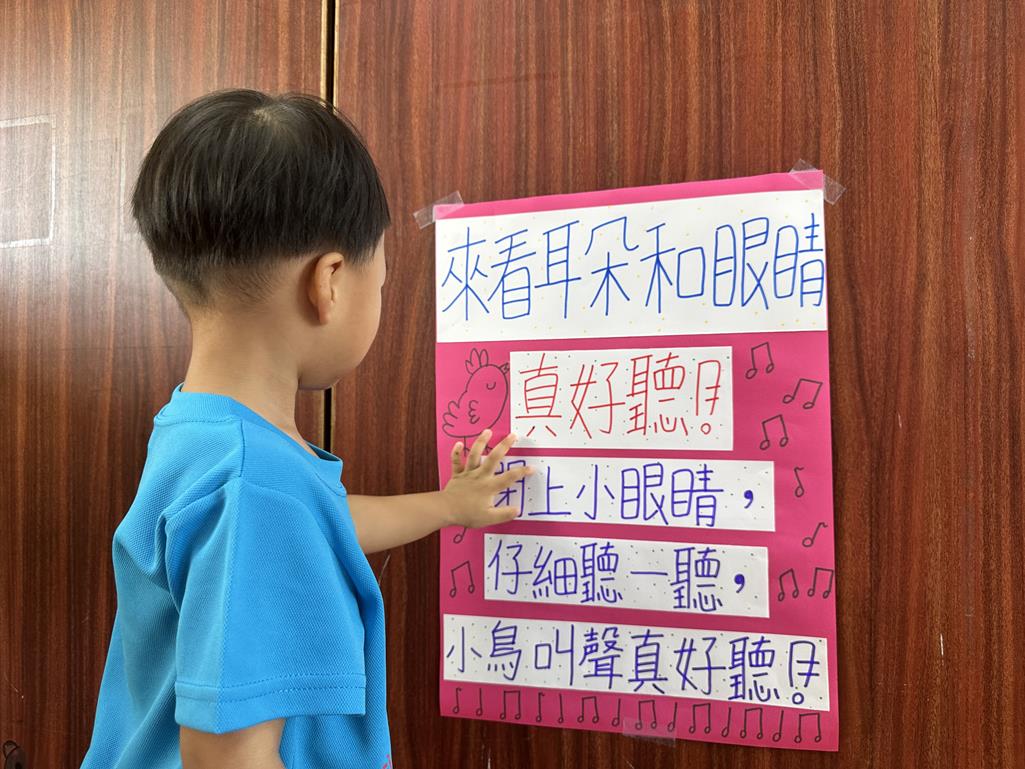 來看耳朵和眼睛
真好聽!
閉上小眼睛，
仔細聽一聽，
小鳥叫聲真好聽!